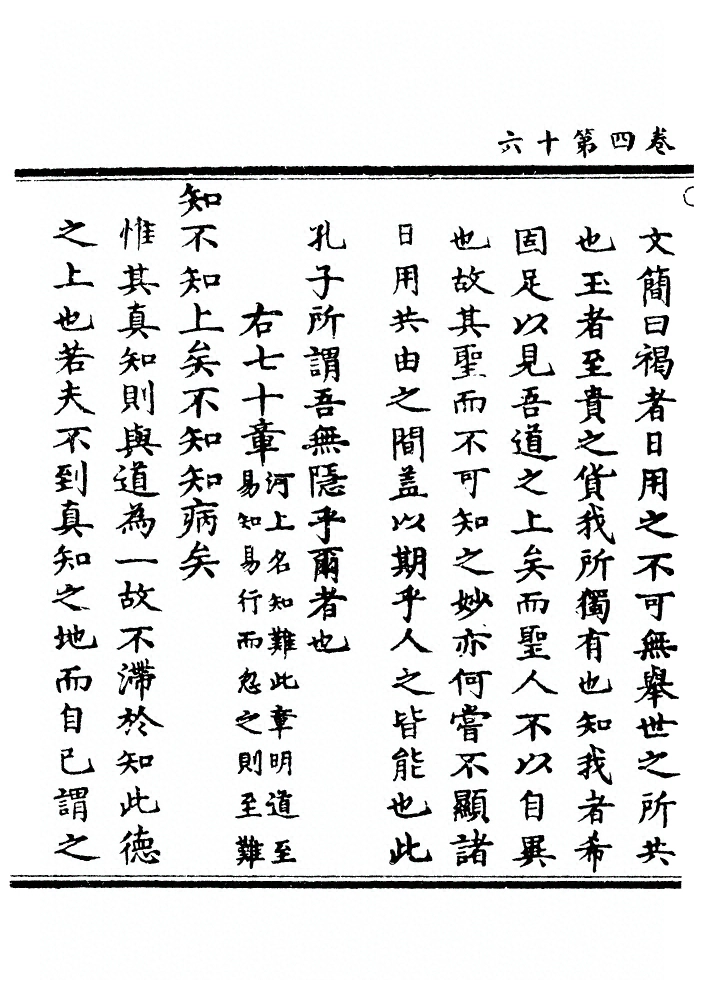 卷四第十六
文簡曰褐者日用之不可無舉世之所共
也玉者至貴之貨我所獨有也知我者希
固足以見吾道之上矣而聖人不以自異
也故其聖而不可知之妙亦何嘗不顯諸
日用共由之間盖以期乎人之皆能也此
孔子所謂吾無隱乎爾者也
右七十章河上名知難此章明道至
易知易行而忽之則至難
知不知上矣不知知病矣
惟其真知則與道為一故不滯於知此德
之上也若夫不到真知之地而自已謂之